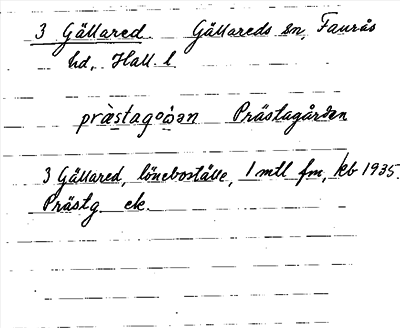 3 Gällared. Gällareds sn, Faurås
hd, Hall. l.
Prästagården
3 Gällared, löneboställe, 1 mtl fm, kb 1935.
Prästg ek.